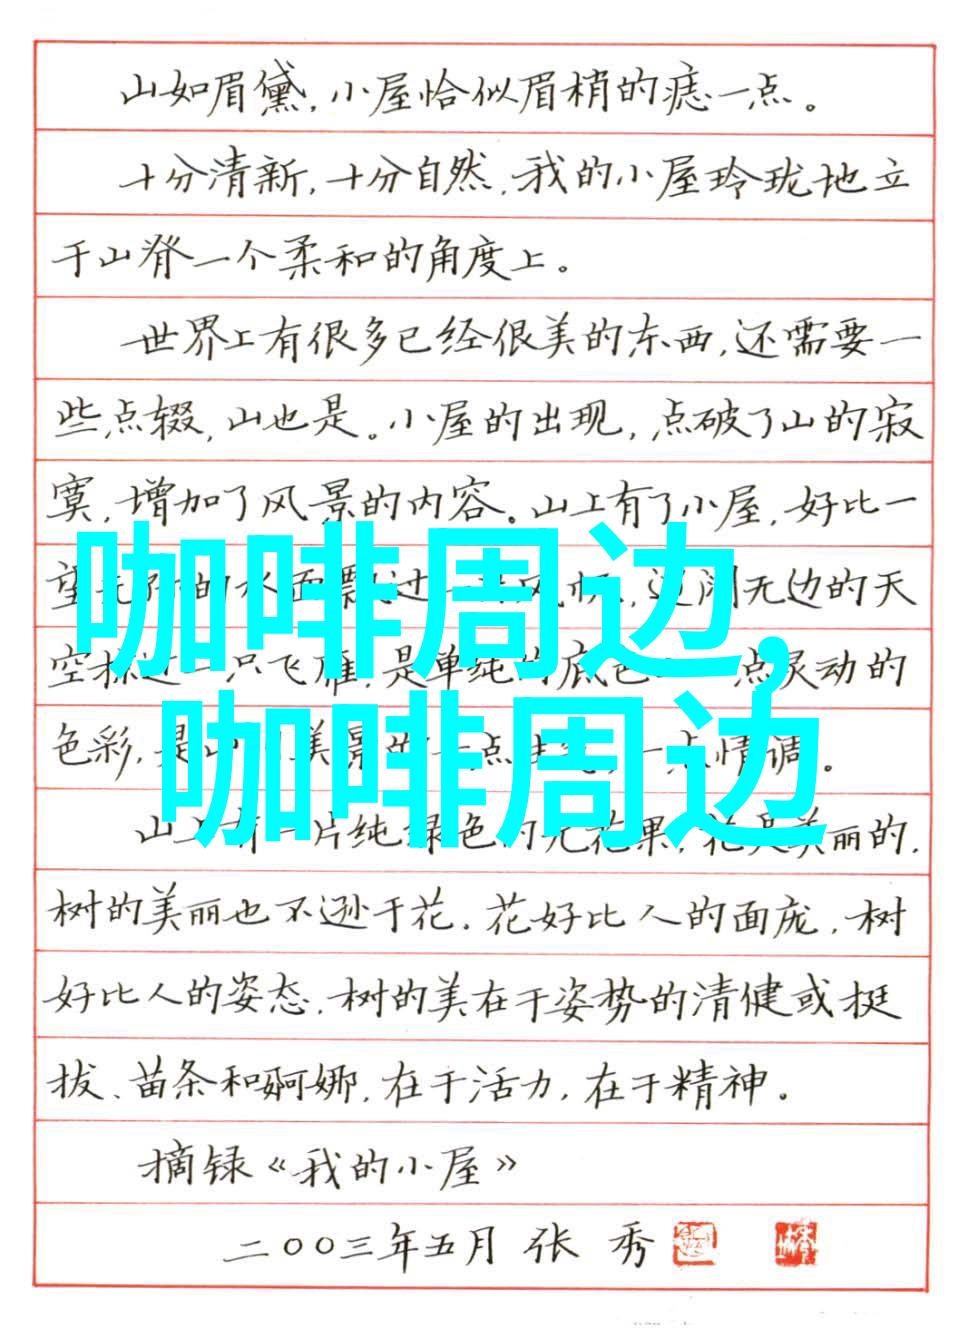 山如眉黛，小屋恰似眉梢的痣一点。
十分清新，十分自然，我的小屋玲珑地立
于山脊一个柔和的角度上。
世界上有很多已经很美的东西，还需要一
些点缀，山也是。小屋的出现，点破了山的寂
寞，增加了风景的内容。山上有了小屋，好比一
望无际的水面飘过一片风帆，辽阔无边的天
空掠过一只飞雁，是单纯的底色上一点灵动的
色彩，是山川美景中的一点生气，一点情调。
咖啡周边，
咖啡周边
山上有一片纯绿色的无花果，花是美丽的，
树的美丽也不逊于花。花好比人的面庞，树
好比人的姿态，树的美在于姿势的清健或挺
拔、苗条和婀娜，在于活力，在于精神。
摘録《我的小屋》
二〇〇三年五月 张 秀